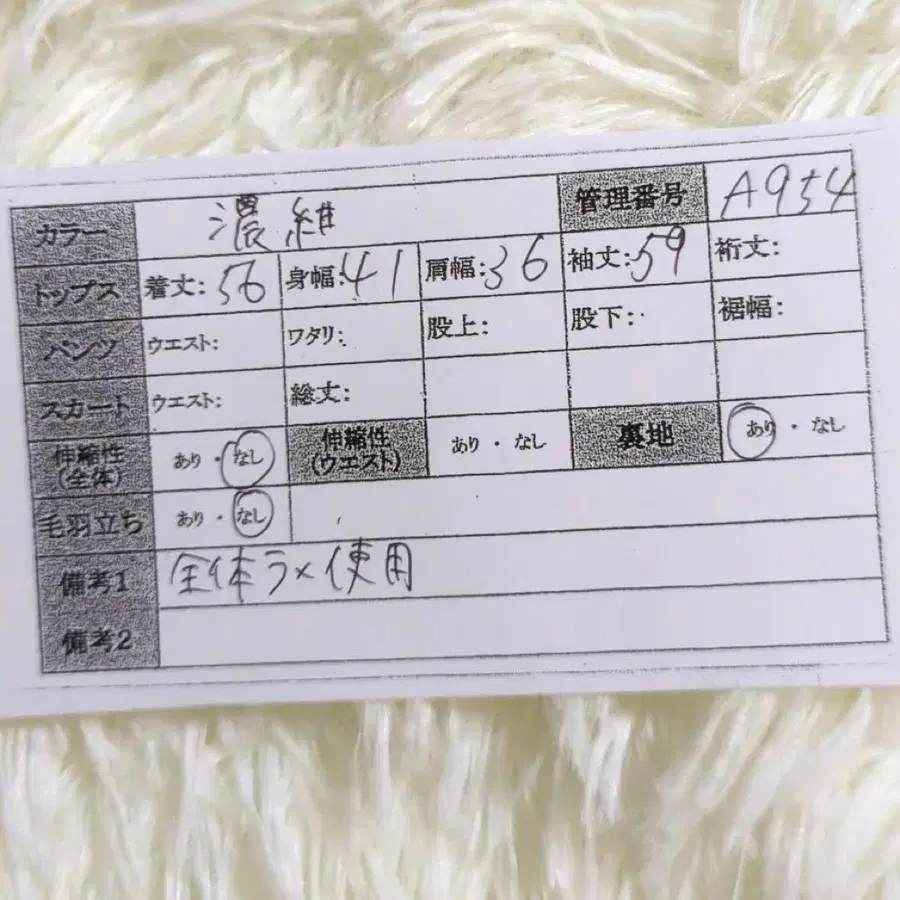 カラー 濃維 管理番号 A954
トップス 着丈:56 身幅:41 肩幅:36 袖丈:59 裄丈:
パンツ ウエスト: ワタリ: 股上: 股下: 裾幅:
スカート ウエスト: 総丈:
伸縮性(全体) あり・なし 伸縮性(ウエスト) あり・なし 裏地 あり・なし
毛羽立ち あり・なし
備考1 全体ラメ使用
備考2